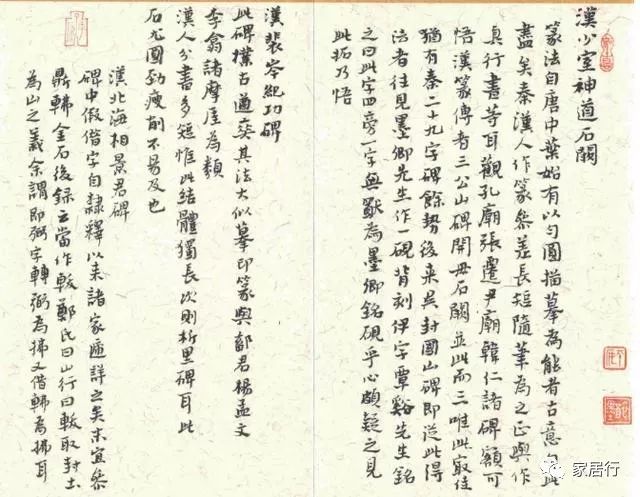 漢少室神道石闕
篆法自唐中葉始有以勻圓描摹為能者古意自此
盡矣秦漢人作篆參差長短隨筆為之正與作
真行書等耳觀孔廟張遷尹廟韓仁諸碑額可
悟漢篆傳者三公山碑開母石闕並此而三唯此最佳
猶有秦二十九字碑餘勢後来吳封國山碑即從此得
法者往見墨卿先生作一硯背刻伊字覃谿先生銘
之曰此字四旁一字無獸為墨卿銘硯乎心頗疑之見
此拓乃悟
漢裴岑紀功碑
此碑樸古遒其法大似摹印篆與鄐君楊孟文
李翕諸摩厓為類
漢人分書多短惟此結體獨長次則析里碑耳此
石尤圓勁瘦削不易及也
漢北海相景君碑
碑中假借字自隸釋以来諸家遞詳之矣末宜參
鼎金石後録云當作軷鄭氏曰山行曰軷取封土
為山之義余謂即弼字轉弼為拂又借為拂耳
家居行